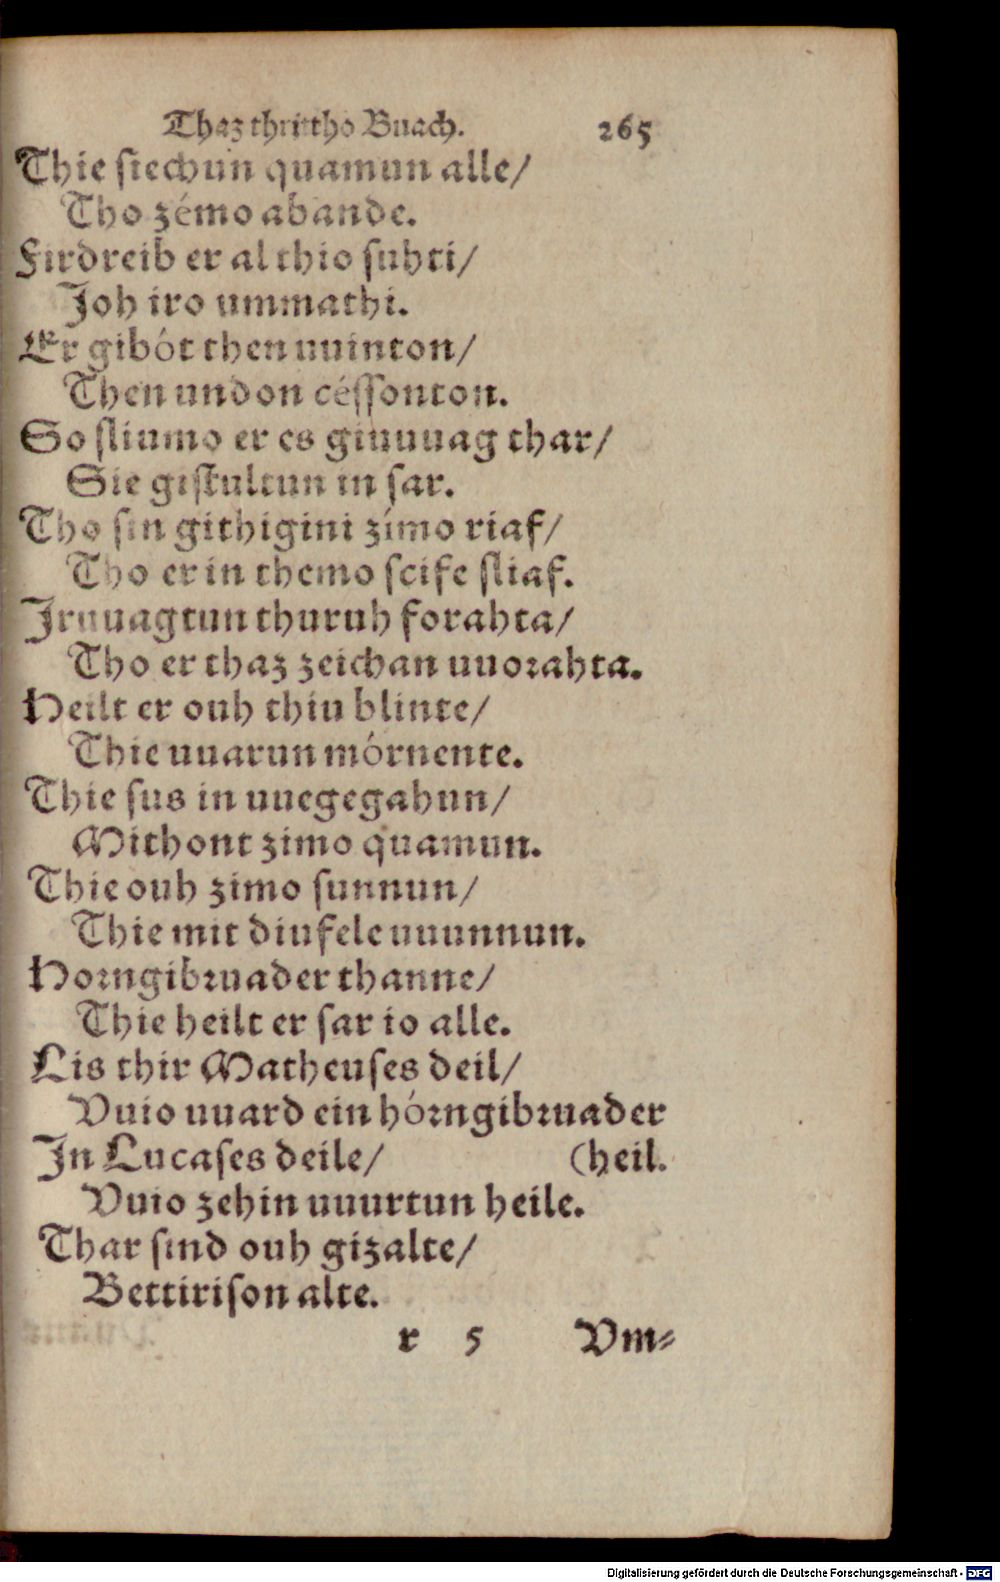 Thaz thrittho Buach. 265
Thie siechun quamun alle/
Tho zémo abande.
Firdreib er al thio suhti/
Joh iro ummathi.
Er gibót then uuinton/
Then undon céssonton.
So sliumo er es giuuuag thar/
Sie gistultun in sar.
Tho sin githigini zímo riaf/
Tho er in themo scife sliaf.
Iruuagtun thuruh forahta/
Tho er thaz zeichan uuorahta.
Heilt er ouh thiu blinte/
Thie uuarun mórnente.
Thie sus in uuegegahun/
Mithont zimo quamun.
Thie ouh zimo sunnun/
Thie mit diufele uuunnun.
Horngibruader thanne/
Thie heilt er sar io alle.
Lis thir Matheuses deil/
Vuio uuard ein hórngibruader
In Lucases deile/ (heil.
Vuio zehin uuurtun heile.
Thar sind ouh gizalte/
Bettirison alte.
r 5 Vm⸗
Digitalisierung gefördert durch die Deutsche Forschungsgemeinschaft - DFG